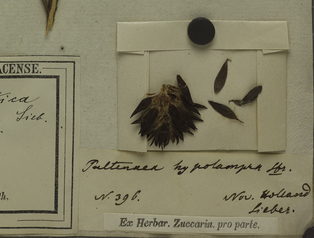 ACENSE.
ica
Sieb.
Pultenaea hypolampra Sbr.
N. 396.
Nov. Holland
Sieber.
Ex Herbar. Zuccarin. pro parte.